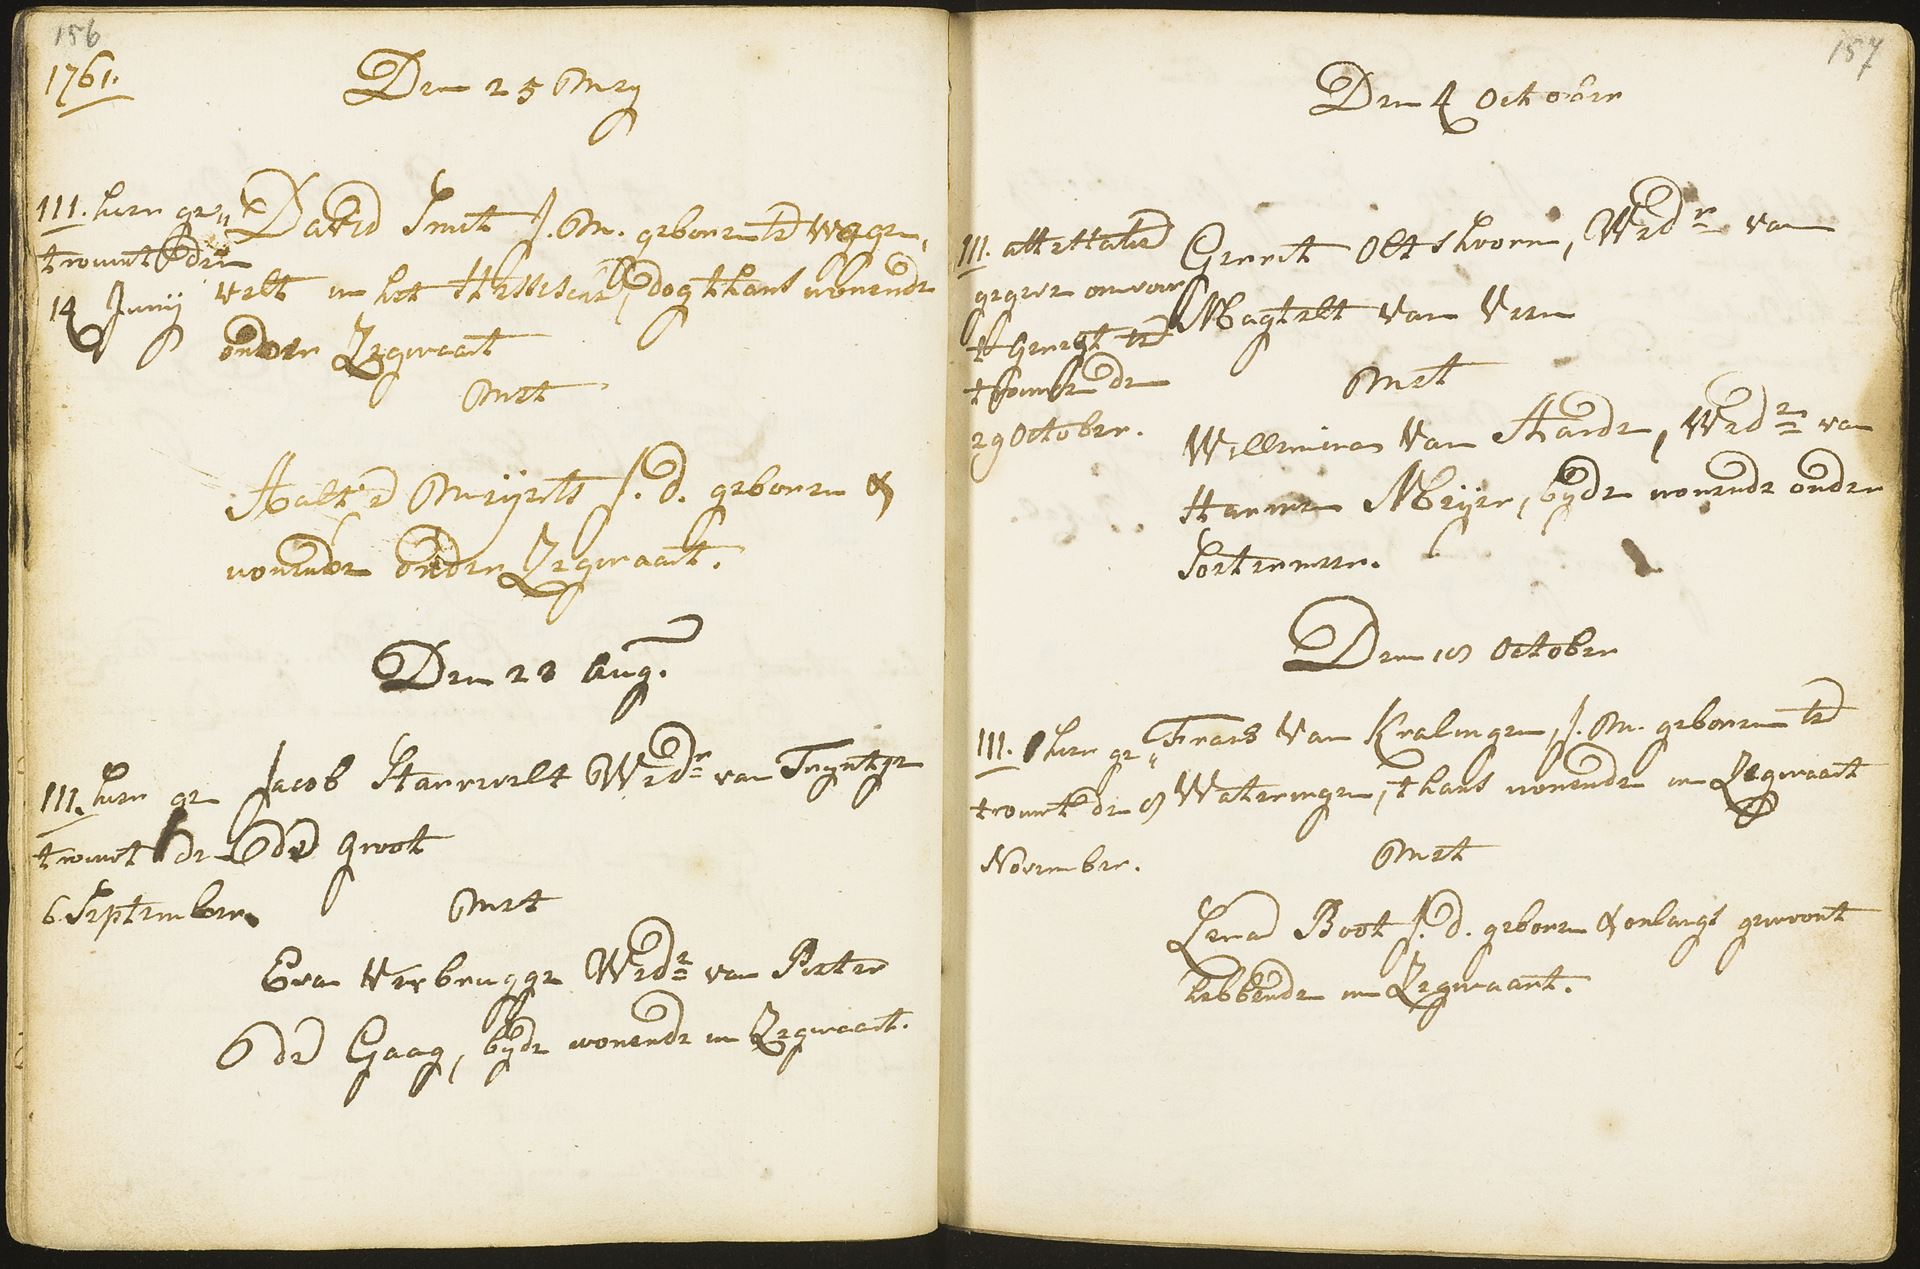 156
1761.
Den 25 Mey
111. hier ge„
trouwt den
14 Junij
David Smit J. M. geboren te
velt in het Hessische, dog thans wonende
onder Zegwaart
met
Aaltie Meijrits J. d. geboren &
wonende onder Zegwaart.
Den 23 Aug.
111. hier ge
trouwt de
6 September
Jacob Starrevelt Wedr van Tryntge
v de Groot
met
Eva Verbrugge Wede van Pieter
v de Gaag, byde wonende in Zegwaart.
157
Den 4 October
111. attestatie
gegeven om voor
't Geregt te
trouwen de
29 October.
Gerrit Oltshoorn, Wedr van
Magtelt van Veen
met
Willemina van Aarde, Wede van
Harmen Meyer, byde wonende onder
Soetermeer.
Den 18 October
111. hier ge„
trouwt de 8
November.
Frans van Kralingen, J. M. geboren te
Wateringen, thans wonende in Zegwaart
met
Lena Boot J. d. geboren & onlangs gewoont
hebbende in Zegwaart.